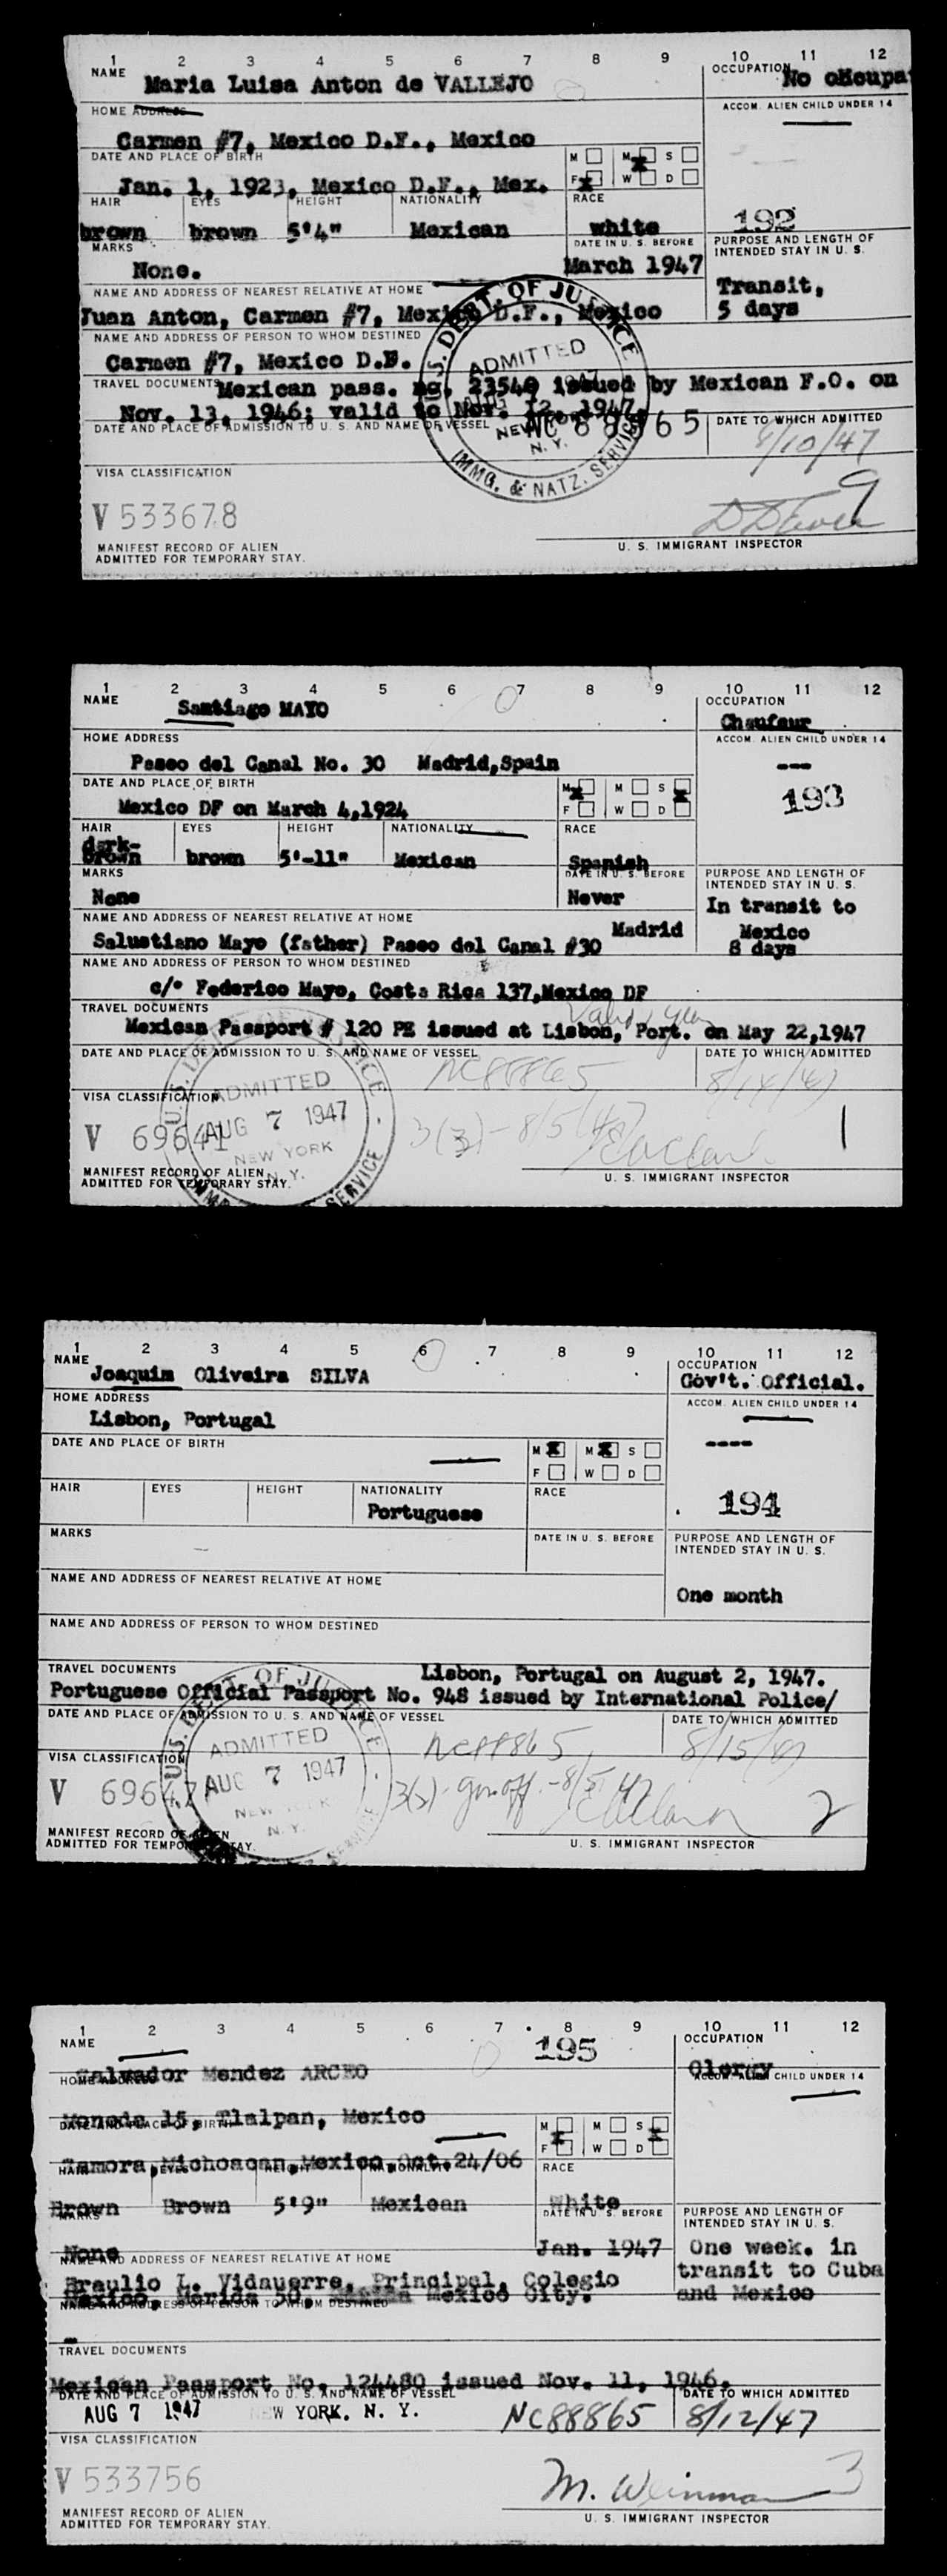 1 2 3 4 5 6 7 8 9 10 11 12
NAME Maria Luisa Anton de VALLEJO OCCUPATION No occupa
HOME ADDRESS ACCOM. ALIEN CHILD UNDER 14
Carmen #7, Mexico D.F., Mexico
DATE AND PLACE OF BIRTH M M S
Jan. 1, 1923, Mexico D.F., Mex. F W D
HAIR EYES HEIGHT NATIONALITY RACE 192
brown brown 5'4" Mexican white
MARKS DATE IN U. S. BEFORE PURPOSE AND LENGTH OF INTENDED STAY IN U. S.
None. March 1947
NAME AND ADDRESS OF NEAREST RELATIVE AT HOME Transit,
Juan Anton, Carmen #7, Mexico D.F., Mexico 5 days
NAME AND ADDRESS OF PERSON TO WHOM DESTINED
Carmen #7, Mexico D.F.
TRAVEL DOCUMENTS Mexican pass. no. 23540 issued by Mexican F.O. on
Nov. 13, 1946; valid to Nov. 12, 1947
DATE AND PLACE OF ADMISSION TO U. S. AND NAME OF VESSEL NC 88865 DATE TO WHICH ADMITTED
U.S. DEPT. OF JUSTICE
ADMITTED
1947
NEW YORK
N. Y.
IMMG. & NATZ. SERVICE
8/10/47
VISA CLASSIFICATION
V 533678 9
MANIFEST RECORD OF ALIEN
ADMITTED FOR TEMPORARY STAY. U. S. IMMIGRANT INSPECTOR
1 2 3 4 5 6 7 8 9 10 11 12
NAME Santiago MAYO OCCUPATION
Chaufeur
HOME ADDRESS ACCOM. ALIEN CHILD UNDER 14
Paseo del Canal No. 30 Madrid,Spain ---
DATE AND PLACE OF BIRTH M M S 193
Mexico DF on March 4,1924 F W D
HAIR EYES HEIGHT NATIONALITY RACE
dark-
brown brown 5'-11" Mexican Spanish
MARKS DATE IN U. S. BEFORE PURPOSE AND LENGTH OF INTENDED STAY IN U. S.
None Never In transit to
NAME AND ADDRESS OF NEAREST RELATIVE AT HOME Madrid Mexico
Salustiano Mayo (father) Paseo del Canal #30 8 days
NAME AND ADDRESS OF PERSON TO WHOM DESTINED
c/o Federico Mayo, Costa Rica 137,Mexico DF
TRAVEL DOCUMENTS Valid 1 year
Mexican Passport # 120 PE issued at Lisbon, Port. on May 22,1947
DATE AND PLACE OF ADMISSION TO U. S. AND NAME OF VESSEL DATE TO WHICH ADMITTED
NC88865 8/14/47
U.S. DEPT. OF JUSTICE
ADMITTED
AUG 7 1947
NEW YORK
N. Y.
IMMG. SERVICE
VISA CLASSIFICATION
V 69641 3(3)-8/5/47 1
MANIFEST RECORD OF ALIEN
ADMITTED FOR TEMPORARY STAY. U. S. IMMIGRANT INSPECTOR
1 2 3 4 5 6 7 8 9 10 11 12
NAME Joaquim Oliveira SILVA OCCUPATION
Gov't. Official.
HOME ADDRESS ACCOM. ALIEN CHILD UNDER 14
Lisbon, Portugal
DATE AND PLACE OF BIRTH M M S ----
F W D
HAIR EYES HEIGHT NATIONALITY RACE 194
Portuguese
MARKS DATE IN U. S. BEFORE PURPOSE AND LENGTH OF INTENDED STAY IN U. S.
NAME AND ADDRESS OF NEAREST RELATIVE AT HOME
One month
NAME AND ADDRESS OF PERSON TO WHOM DESTINED
TRAVEL DOCUMENTS Lisbon, Portugal on August 2, 1947.
Portuguese Official Passport No. 948 issued by International Police/
DATE AND PLACE OF ADMISSION TO U. S. AND NAME OF VESSEL DATE TO WHICH ADMITTED
NC88865 8/15/47
U.S. DEPT. OF JUSTICE
ADMITTED
AUG 7 1947
NEW YORK
N. Y.
VISA CLASSIFICATION
V 69647 8/5/47 2
MANIFEST RECORD OF ALIEN
ADMITTED FOR TEMPORARY STAY. U. S. IMMIGRANT INSPECTOR
1 2 3 4 5 6 7 8 9 10 11 12
NAME 195 OCCUPATION
Salvador Mendez ARCEO Clergy
HOME ADDRESS ACCOM. ALIEN CHILD UNDER 14
Moneda 15, Tlalpan, Mexico
DATE AND PLACE OF BIRTH M M S
Zamora, Michoacan, Mexico Oct. 24/06 F W D
HAIR EYES HEIGHT NATIONALITY RACE
Brown Brown 5'9" Mexican White
MARKS DATE IN U. S. BEFORE PURPOSE AND LENGTH OF INTENDED STAY IN U. S.
None Jan. 1947 One week. in
NAME AND ADDRESS OF NEAREST RELATIVE AT HOME transit to Cuba
Braulio L. Vidaurre, Principal, Colegio and Mexico
Mexico, Merida 50, Mexico City.
NAME AND ADDRESS OF PERSON TO WHOM DESTINED
-
TRAVEL DOCUMENTS
Mexican Passport No. 124480 issued Nov. 11, 1946.
DATE AND PLACE OF ADMISSION TO U. S. AND NAME OF VESSEL DATE TO WHICH ADMITTED
AUG 7 1947 NEW YORK, N. Y. NC88865 8/12/47
VISA CLASSIFICATION
V 533756 M. Weinman 3
MANIFEST RECORD OF ALIEN
ADMITTED FOR TEMPORARY STAY. U. S. IMMIGRANT INSPECTOR